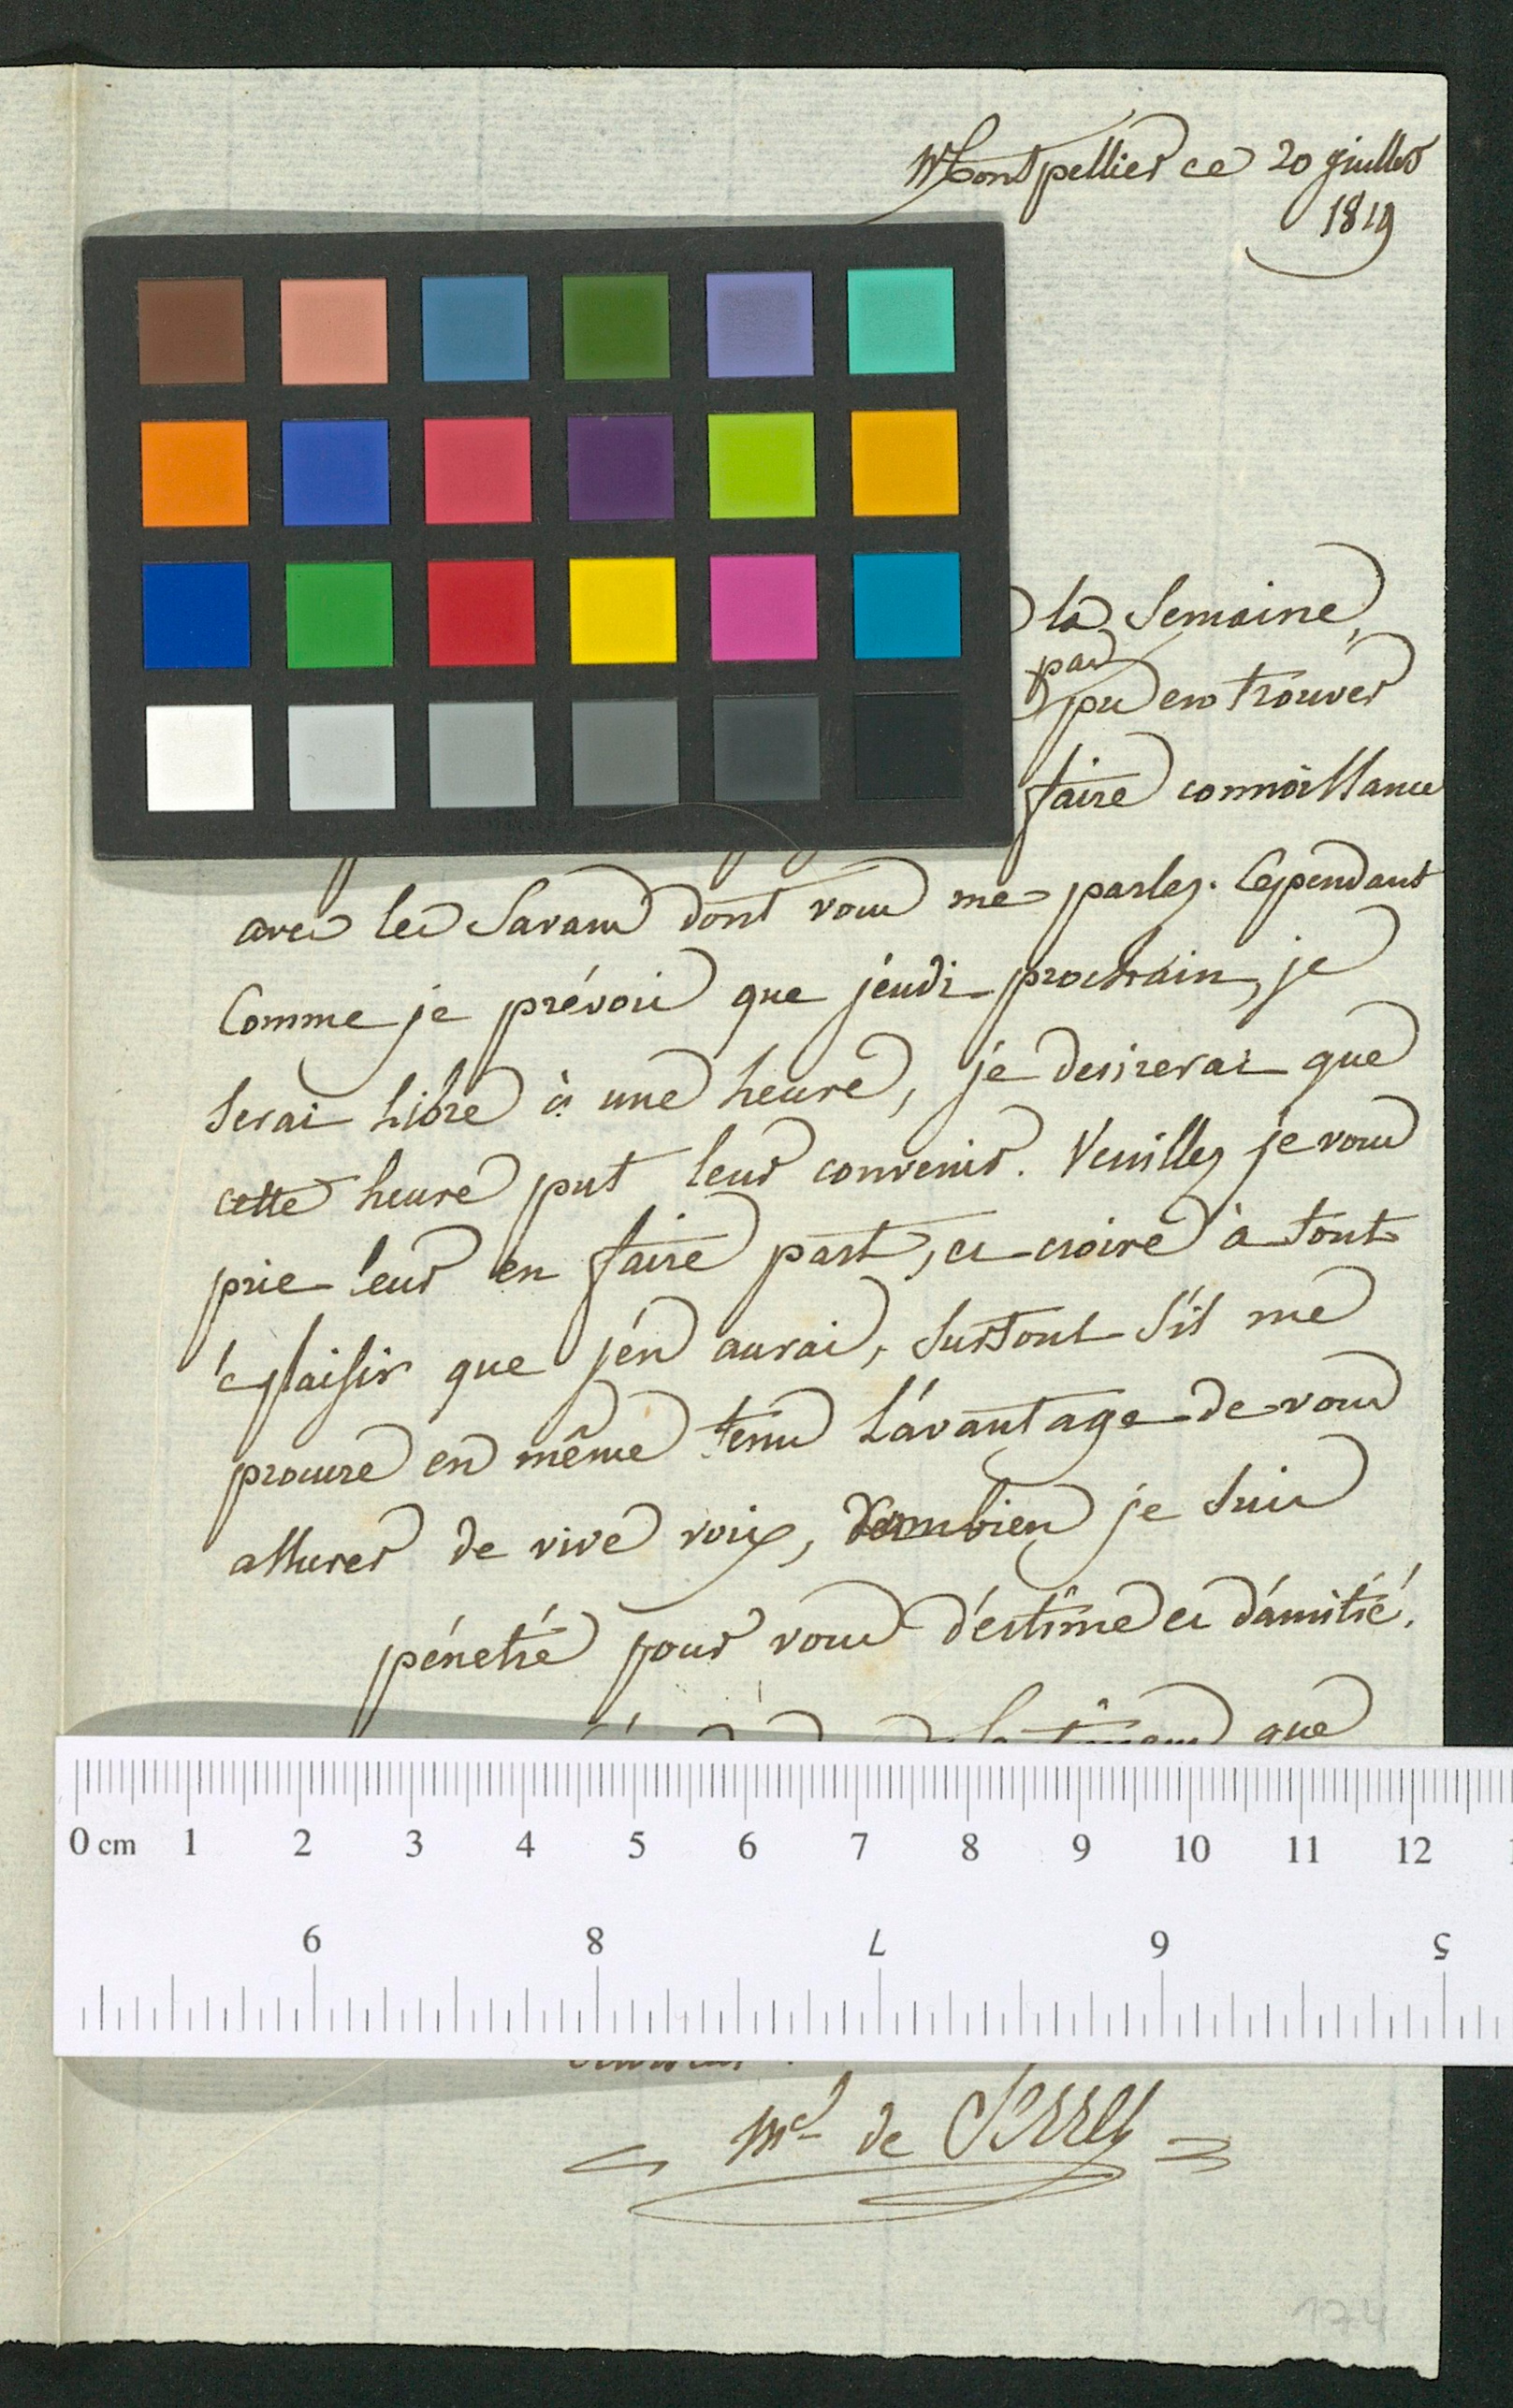 Montpellier ce 20 juillet
1819
la Semaine,
pas
pu en trouver
faire connoissance
avec les Savans dont vous me parlez. Cependant
Comme je prévois que jeudi prochain, je
serai libre à une heure, je desirerai que
cette heure put leur convenir. Veuillez je vous
prie leur en faire part, et croire à tout
le plaisir que j'en aurai, surtout s'il me
procure en même tems l'avantage de vous
assurer de vive voix, combien je suis
pénetré pour vous d'estime et d'amitié.
que
0 cm 1 2 3 4 5 6 7 8 9 10 11 12
9 8 7 6 5
Mel de Serres
174